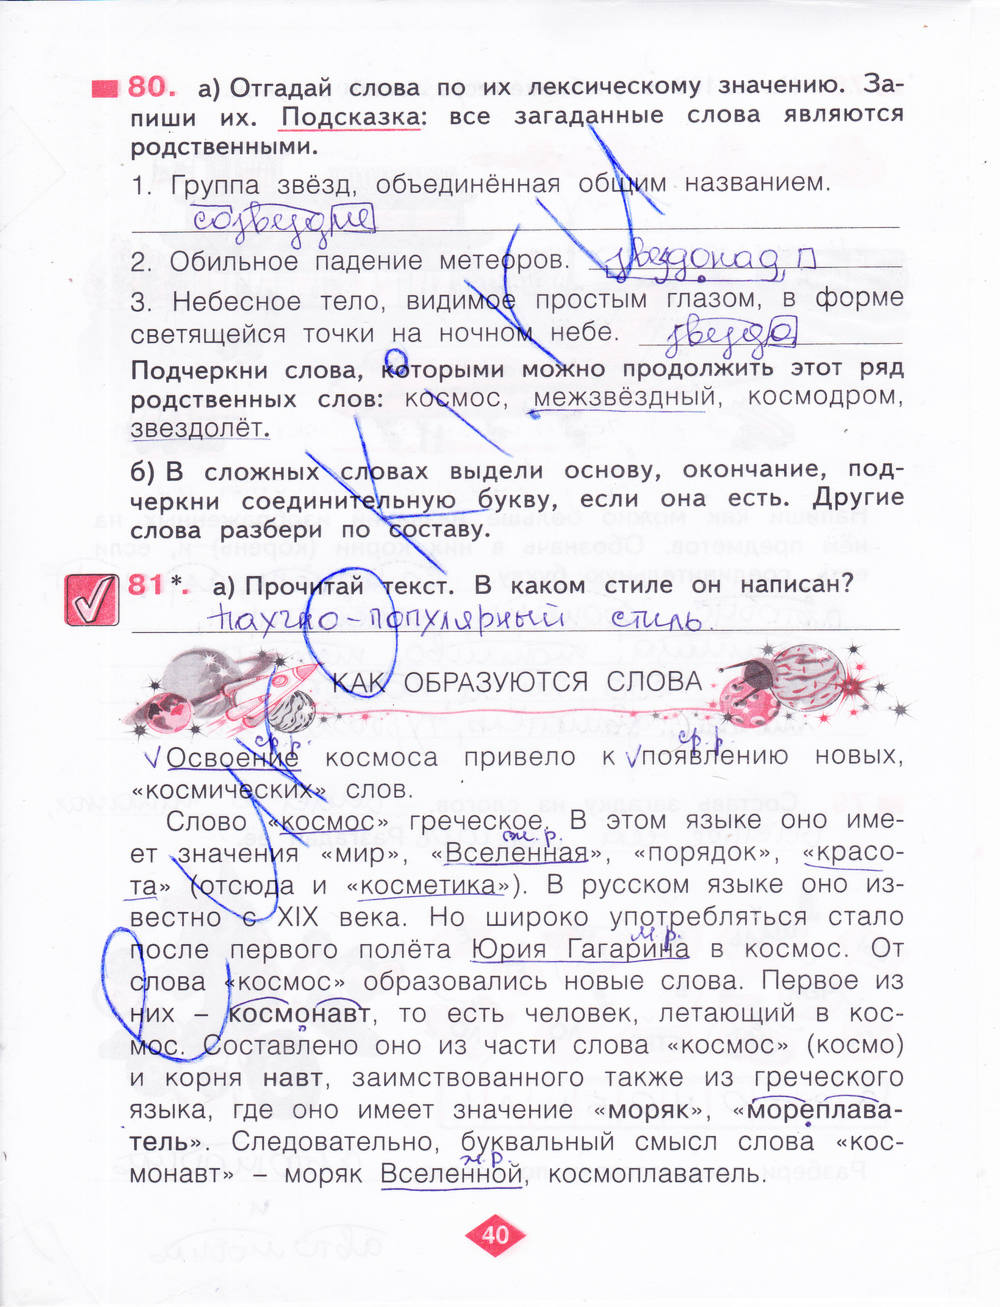 80. а) Отгадай слова по их лексическому значению. За-
пиши их. Подсказка: все загаданные слова являются
родственными.
1. Группа звёзд, объединённая общим названием.
созвездие
2. Обильное падение метеоров. звездопад
3. Небесное тело, видимое простым глазом, в форме
светящейся точки на ночном небе. звезда
Подчеркни слова, которыми можно продолжить этот ряд
родственных слов: космос, межзвёздный, космодром,
звездолёт.
б) В сложных словах выдели основу, окончание, под-
черкни соединительную букву, если она есть. Другие
слова разбери по составу.
81*. а) Прочитай текст. В каком стиле он написан?
Научно-популярный стиль.
КАК ОБРАЗУЮТСЯ СЛОВА
ср.р. ср.р.
Освоение космоса привело к появлению новых,
«космических» слов.
Слово «космос» греческое. В этом языке оно име-
ж.р.
ет значения «мир», «Вселенная», «порядок», «красо-
та» (отсюда и «косметика»). В русском языке оно из-
вестно с XIX века. Но широко употребляться стало
м.р.
после первого полёта Юрия Гагарина в космос. От
слова «космос» образовались новые слова. Первое из
них – космонавт, то есть человек, летающий в кос-
мос. Составлено оно из части слова «космос» (космо)
и корня навт, заимствованного также из греческого
языка, где оно имеет значение «моряк», «мореплава-
тель». Следовательно, буквальный смысл слова «кос-
ж.р.
монавт» – моряк Вселенной, космоплаватель.
40